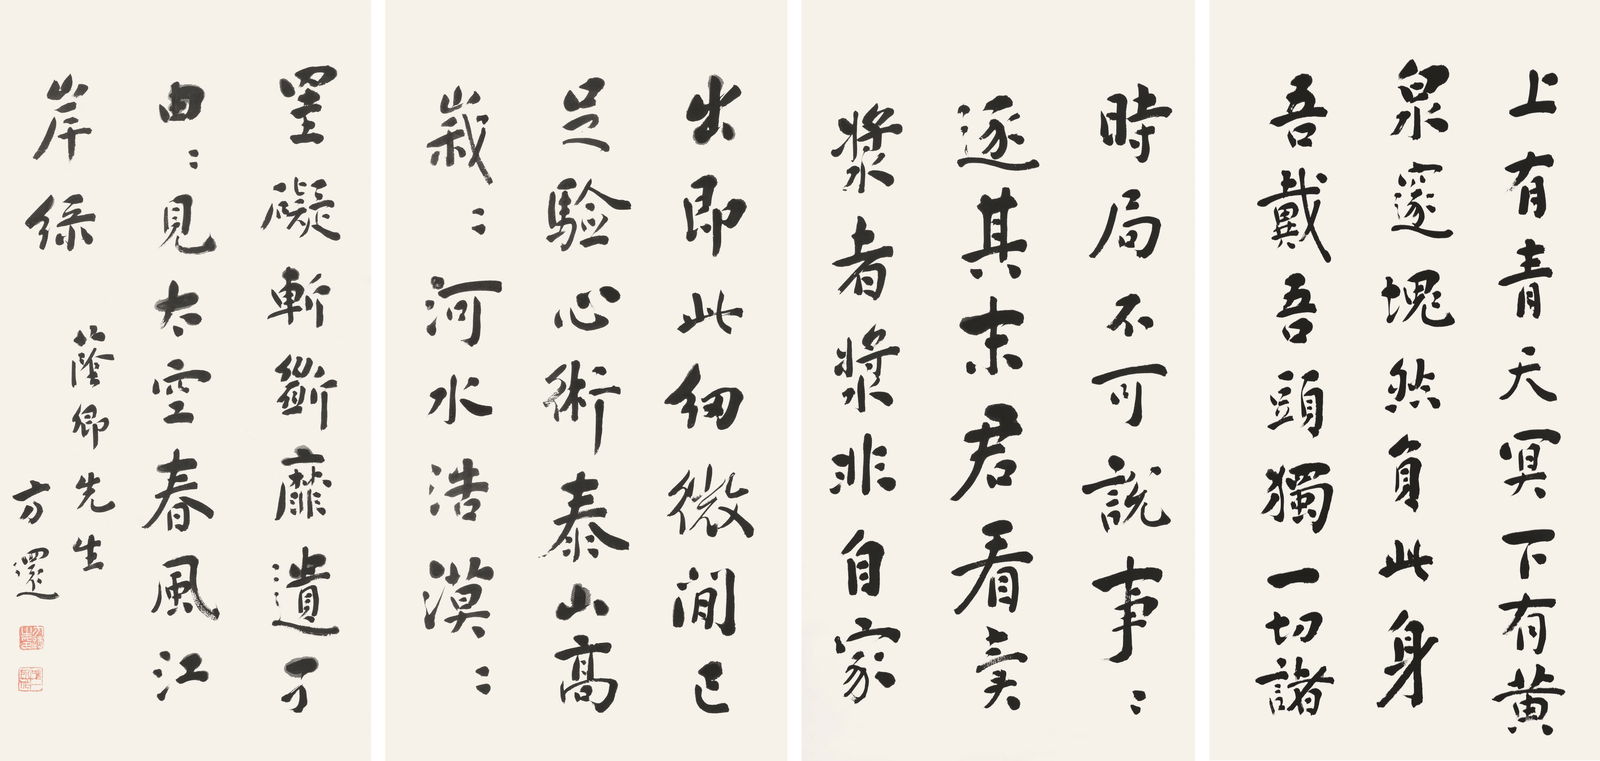 上有青天冥下有黄
泉邃塊然負此身
吾戴吾頭獨一切諸
時局不可說事：
逐其末君看賣
漿者漿非自家
出即此細微閒已
足驗心術泰山高
巀：河水浩漠：
罣礙斬斷靡遺孑
曲：見太空春風江
岸綠
蔭卿先生
方還